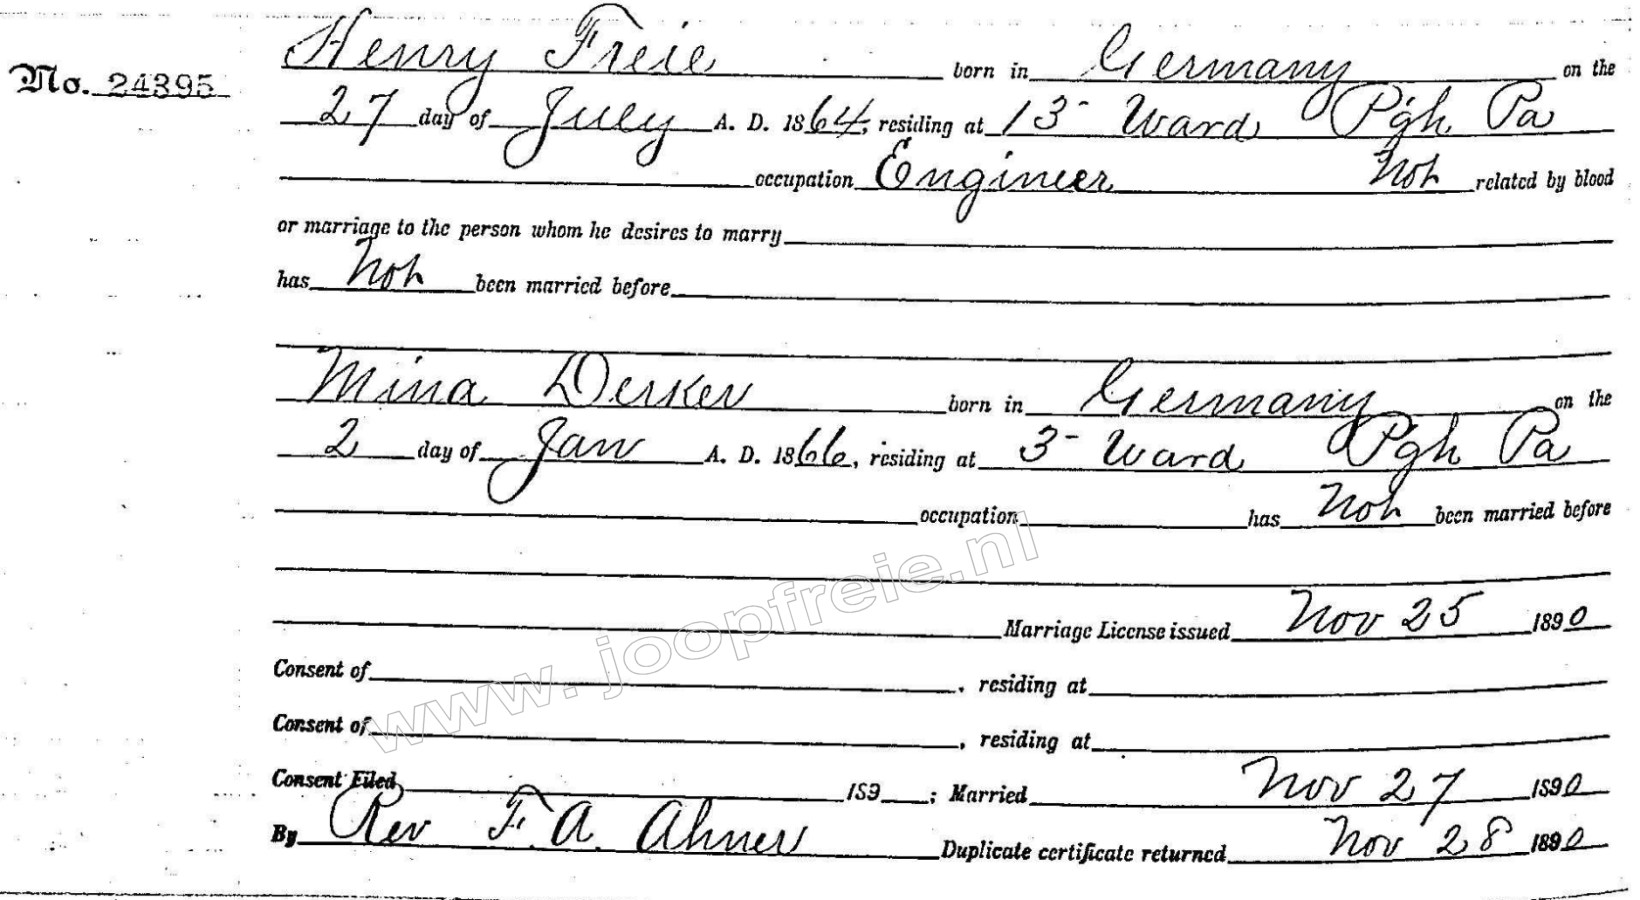 No. 24395
Henry Freie born in Germany on the
27 day of July A. D. 1864, residing at 13 - Ward Pgh Pa
occupation Engineer Not related by blood
or marriage to the person whom he desires to marry
has Not been married before
Mina Derker born in Germany on the
2 day of Jan A. D. 1866, residing at 3 - Ward Pgh Pa
occupation has Not been married before
Marriage License issued Nov 25 1890
Consent of , residing at
Consent of , residing at
Consent Filed 189 ; Married Nov 27 1890
By Rev F. A. Ahner Duplicate certificate returned Nov 28 1890
www.joopfreie.nl